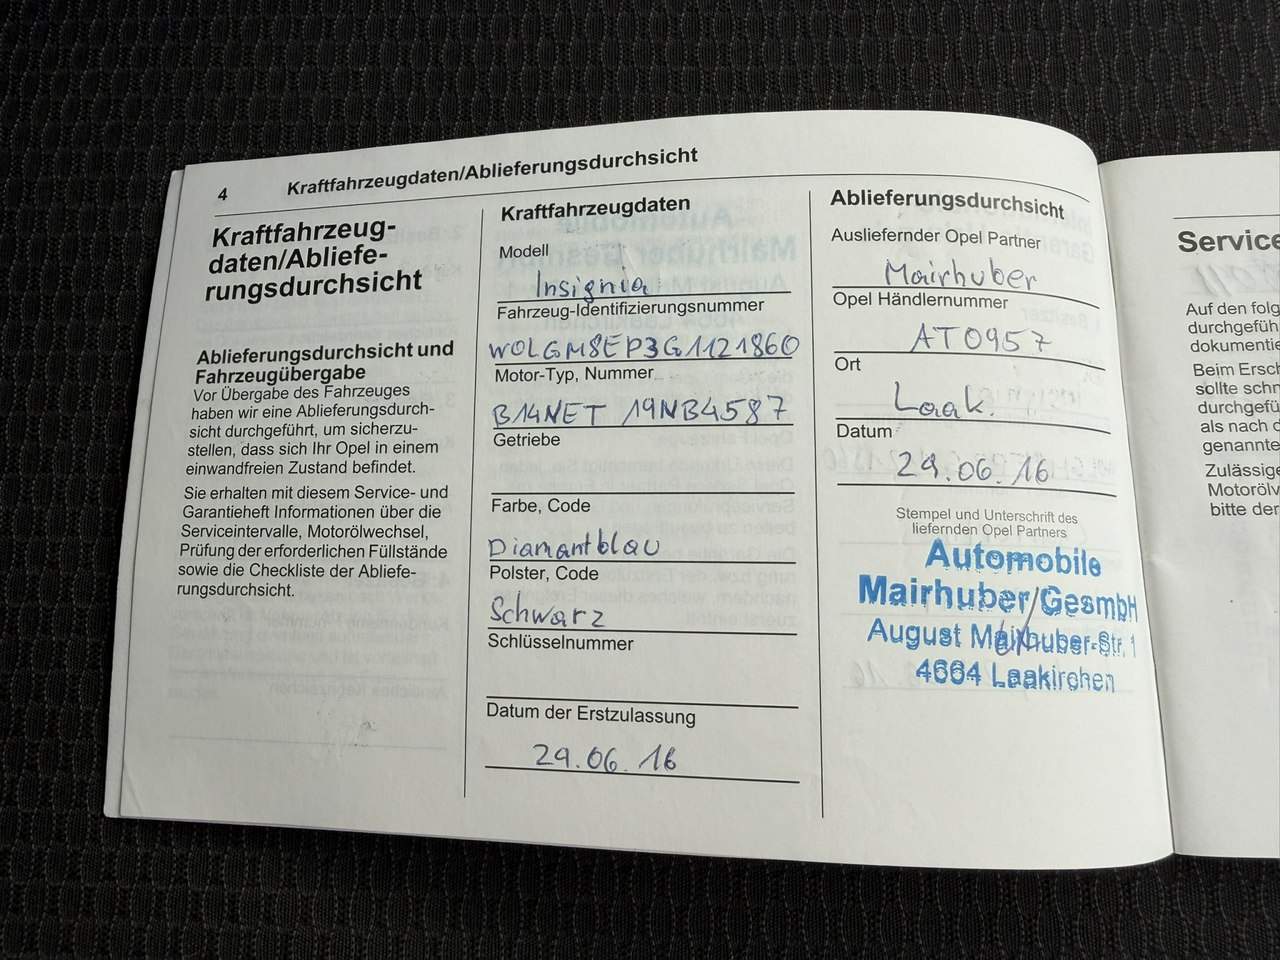 4
Kraftfahrzeugdaten/Ablieferungsdurchsicht
Kraftfahrzeug-
daten/Abliefe-
rungsdurchsicht
Ablieferungsdurchsicht und
Fahrzeugübergabe
Vor Übergabe des Fahrzeuges
haben wir eine Ablieferungsdurch-
sicht durchgeführt, um sicherzu-
stellen, dass sich Ihr Opel in einem
einwandfreien Zustand befindet.
Sie erhalten mit diesem Service- und
Garantieheft Informationen über die
Serviceintervalle, Motorölwechsel,
Prüfung der erforderlichen Füllstände
sowie die Checkliste der Abliefe-
rungsdurchsicht.
Kraftfahrzeugdaten
Modell
Insignia
Fahrzeug-Identifizierungsnummer
W0LGM8EP3G1121860
Motor-Typ, Nummer
B14NET 19NB4587
Getriebe
Farbe, Code
Diamantblau
Polster, Code
Schwarz
Schlüsselnummer
Datum der Erstzulassung
29.06.16
Ablieferungsdurchsicht
Ausliefernder Opel Partner
Mairhuber
Opel Händlernummer
AT0957
Ort
Laak.
Datum
29.06.16
Stempel und Unterschrift des
liefernden Opel Partners
Automobile
Mairhuber GesmbH
August Mairhuber-Str. 1
4664 Laakirchen
Service
Auf den folg
durchgefüh
dokumentie
Beim Ersch
sollte schn
durchgefü
als nach d
genannte
Zulässige
Motorölv
bitte der